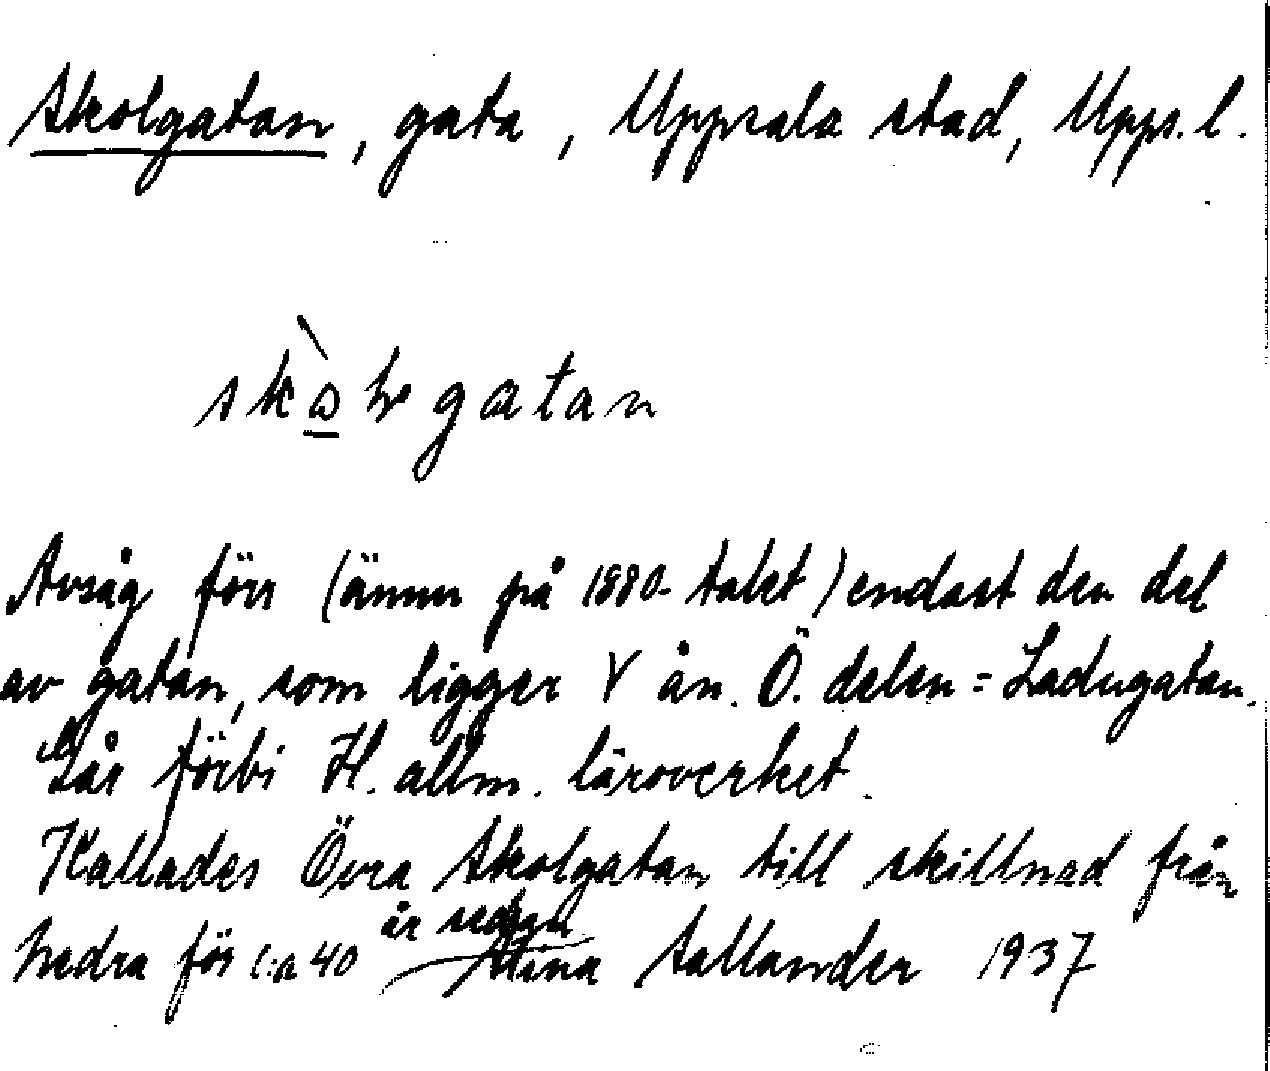 Skolgatan, gata, Uppsala stad, Upps. l.
skò̱lgatan
Avsåg förr (ännu på 1880-talet) endast den del
av gatan, som ligger V ån. Ö. delen = Ladugatan.
Går förbi H. allm. läroverket.
Kallades Övra Skolgatan till skillnad från
Nedra för c:a 40 år sedan Stina Sallander 1937